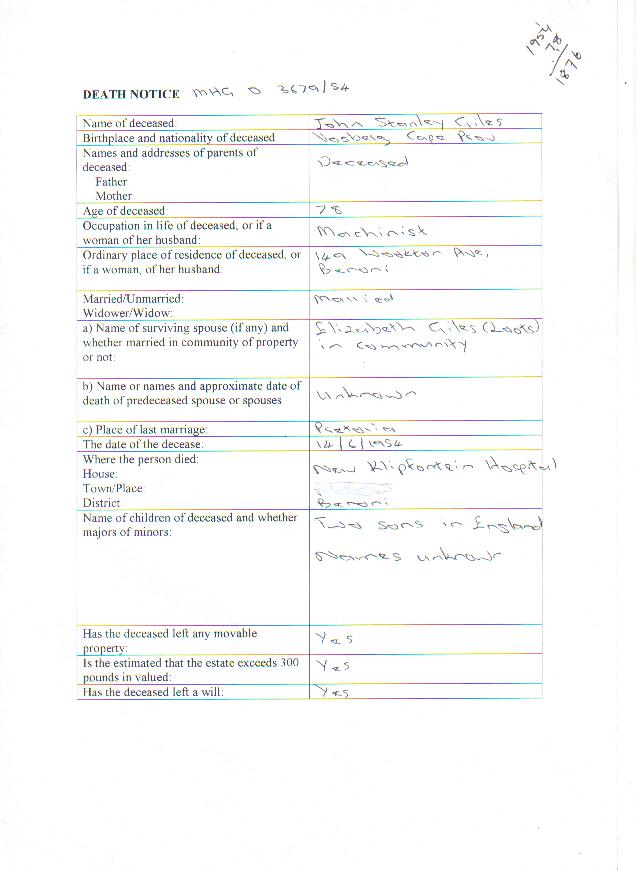 1954
78
1876
DEATH NOTICE MHG O 3679/54
Name of deceased: John Stanley Giles
Birthplace and nationality of deceased Vosberg Cape Prov
Names and addresses of parents of Deceased
deceased:
Father
Mother
Age of deceased: 78
Occupation in life of deceased, or if a Machinist
woman of her husband:
Ordinary place of residence of deceased, or 149 Ave,
if a woman, of her husband: Benoni
Married/Unmarried: Married
Widower/Widow:
a) Name of surviving spouse (if any) and Elizabeth Giles (Loots)
whether married in community of property in community
or not:
b) Name or names and approximate date of unknown
death of predeceased spouse or spouses
c) Place of last marriage: Pretoria
The date of the decease: 14/6/1954
Where the person died: New Klipfontein Hospital
House:
Town/Place:
District: Benoni
Name of children of deceased and whether Two sons in England
majors of minors:
Names unknown
Has the deceased left any movable Yes
property:
Is the estimated that the estate exceeds 300 Yes
pounds in valued:
Has the deceased left a will: Yes